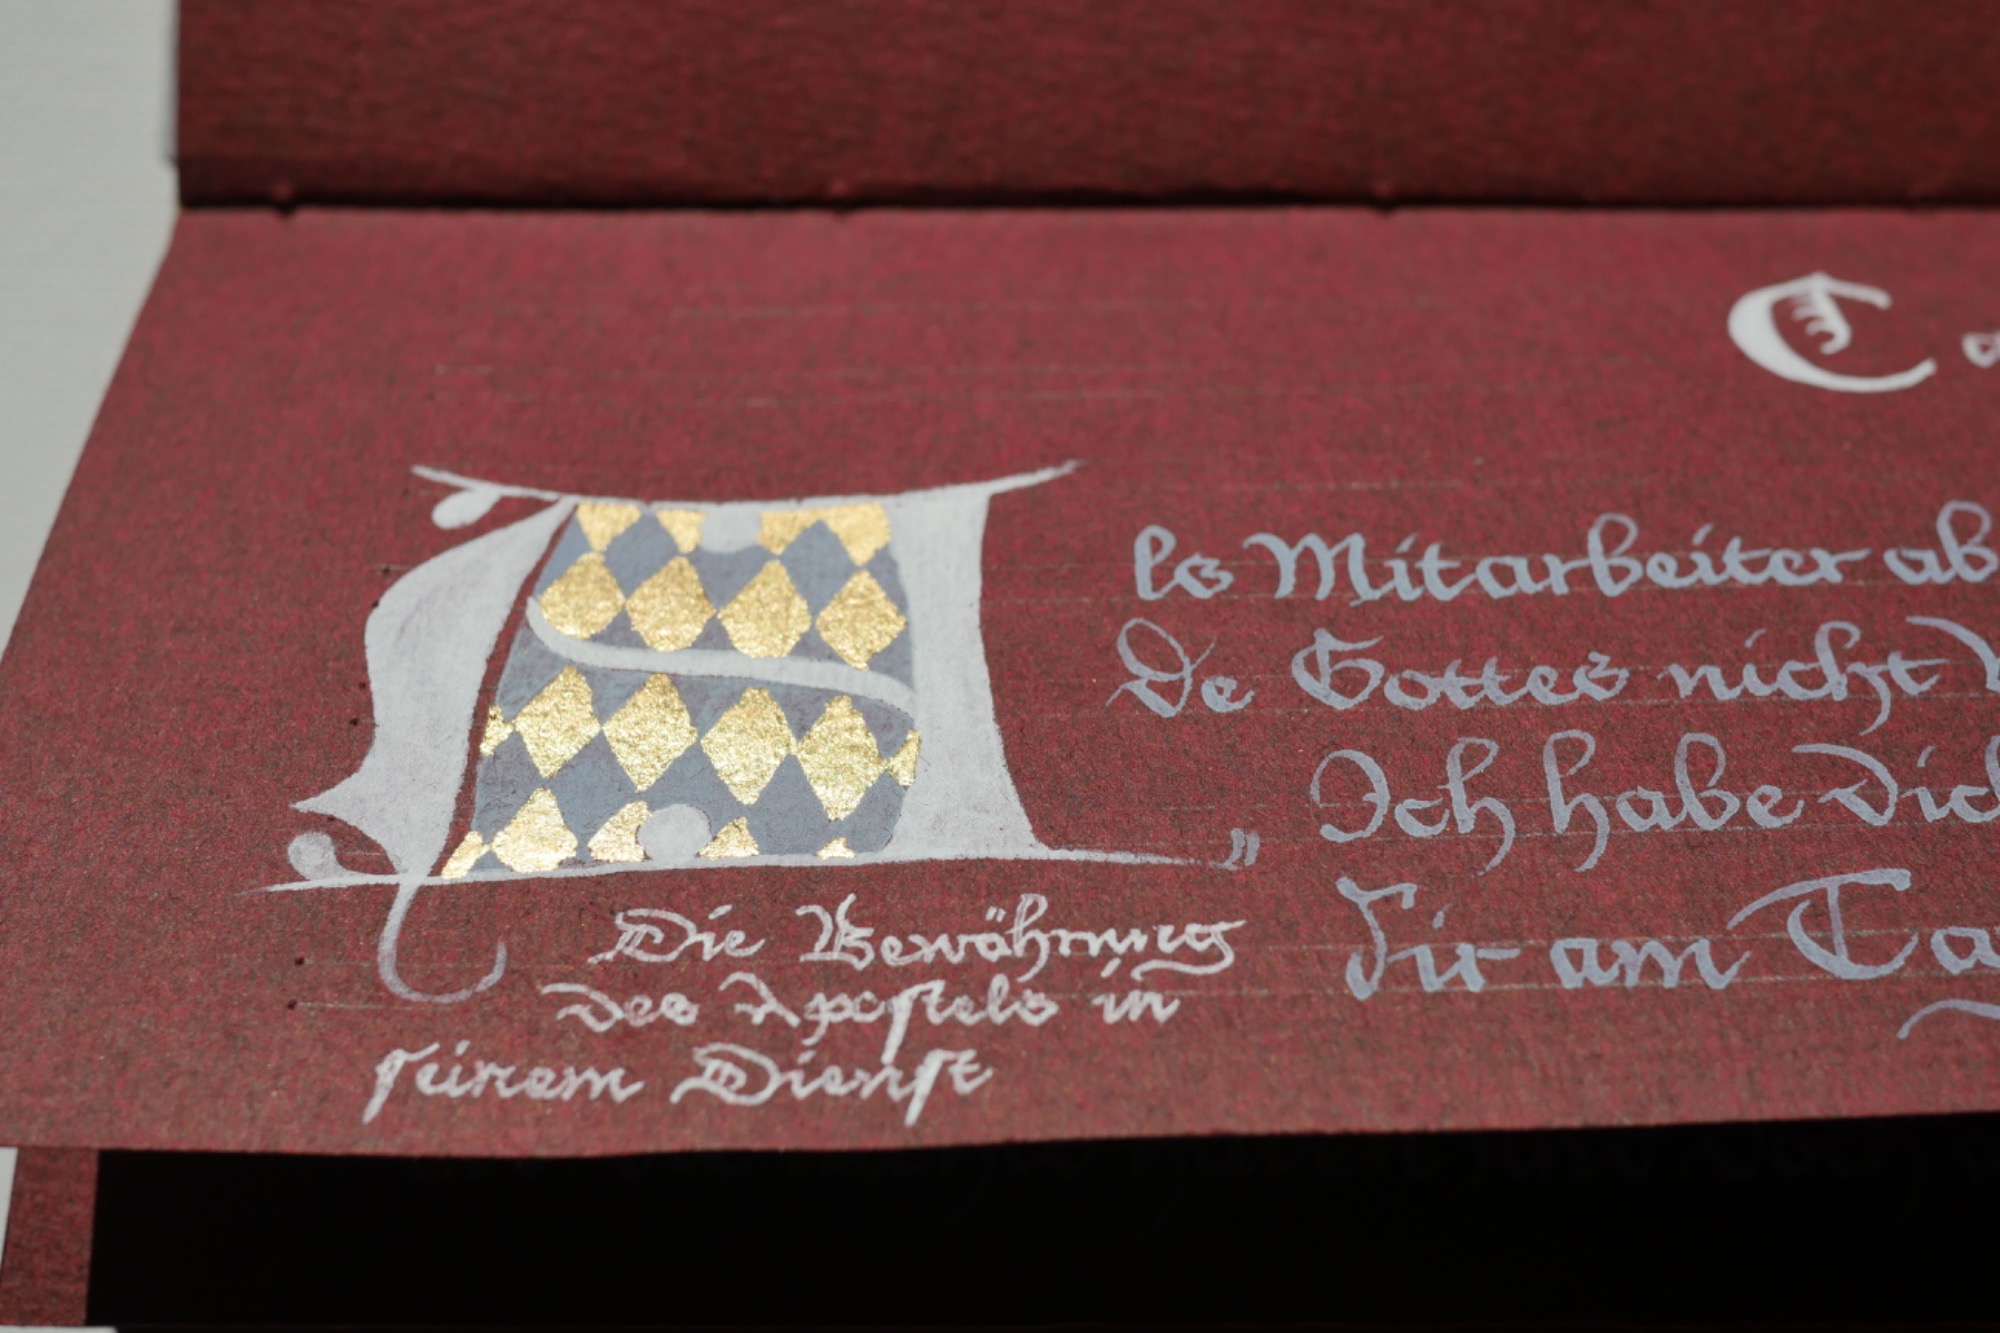 C
Als Mitarbeiter ab
De Gottes nicht
Ich habe dich
Dir am Ta
„
Die Bewährung
des Apostels in
seinem Dienst